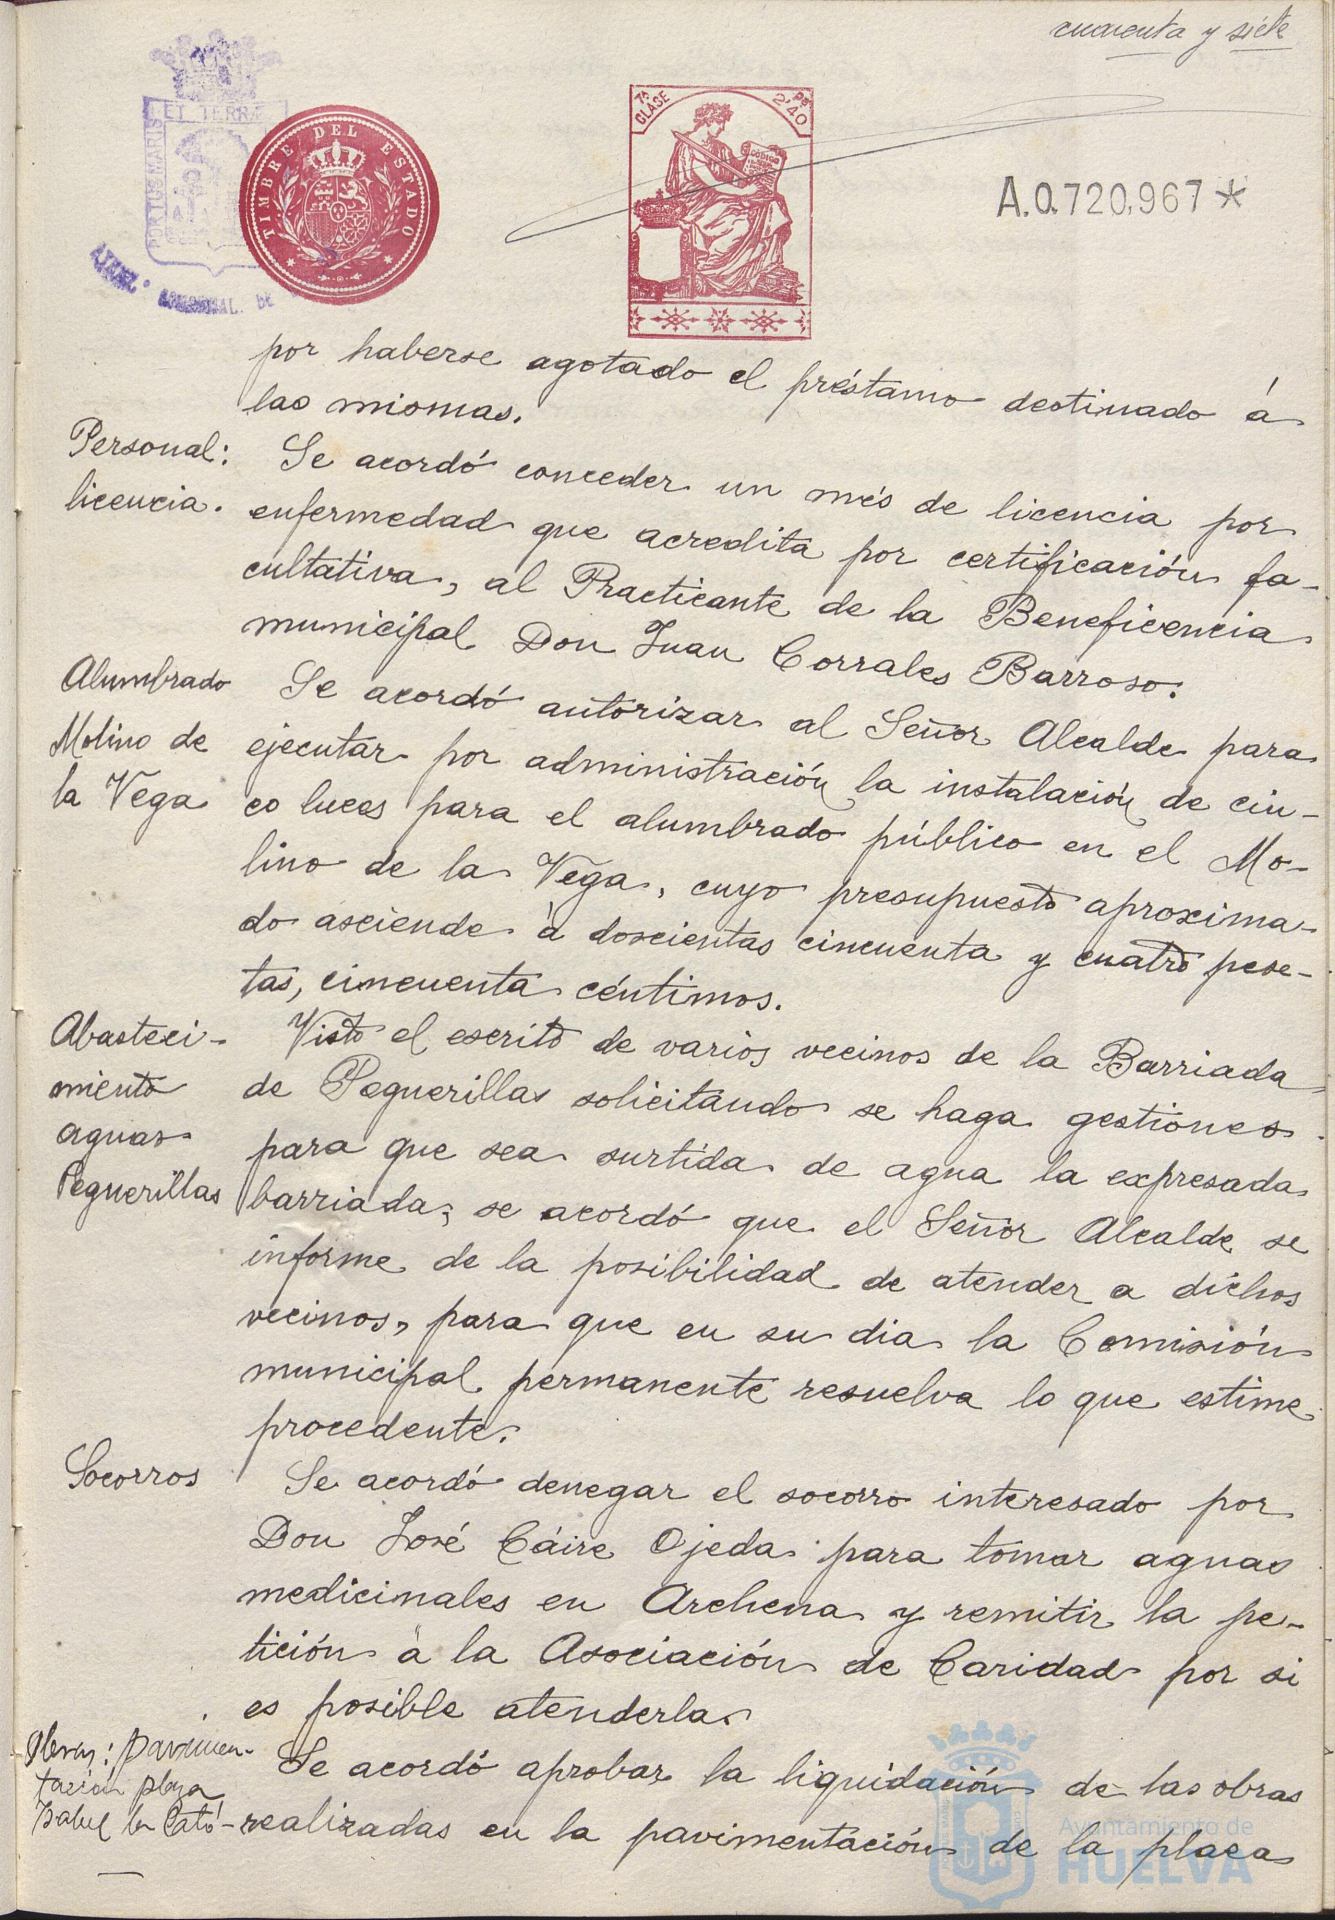 cuarenta y siete
PORTUS MARIS ET TERRÆ
TIMBRE DEL ESTADO
7ª CLASE
2'40
CODIGO
A.0.720,967*
por haberse agotado el préstamo destinado á
las mismas.
Personal:
licencia.
Se acordó conceder un més de licencia por
enfermedad que acredita por certificación fa-
cultativa, al Practicante de la Beneficencia
municipal Don Juan Corrales Barroso.
Alumbrado
Molino de
la Vega
Se acordó autorizar al Señor Alcalde para
ejecutar por administración la instalación de cin-
co luces para el alumbrado público en el Mo-
lino de la Vega, cuyo presupuesto aproxima-
do asciende á doscientas cincuenta y cuatro pese-
tas, cincuenta céntimos.
Abasteci-
miento
aguas
Peguerillas
Visto el escrito de varios vecinos de la Barriada
de Peguerillas solicitando se haga gestiones
para que sea surtida de agua la expresada
barriada; se acordó que el Señor Alcalde se
informe de la posibilidad de atender a dichos
vecinos, para que en su dia la Comisión
municipal permanente resuelva lo que estime
procedente.
Socorros
Se acordó denegar el socorro interesado por
Don José Cáire Ojeda para tomar aguas
medicinales en Archena y remitir la pe-
tición á la Asociación de Caridad por si
es posible atenderla.
Obras: pavimen-
tación plaza
Isabel la Cató-
Se acordó aprobar la liquidación de las obras
realizadas en la pavimentación de la plaza
Ayuntamiento de
HUELVA